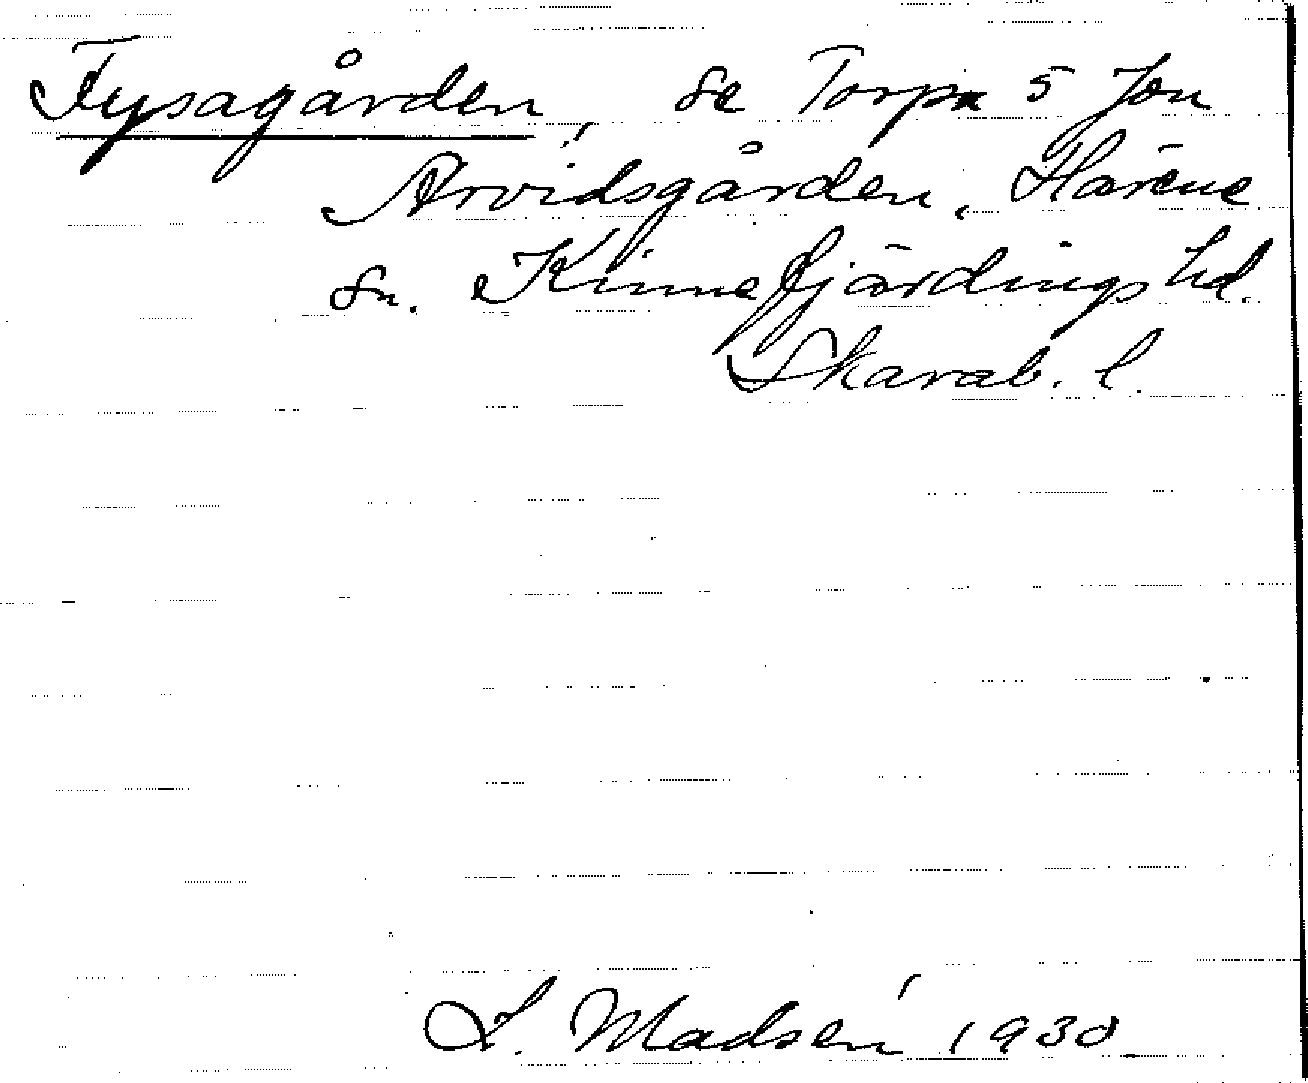 Fysagården, se Torpa 5 Jon
Arvidsgården, Härene
sn. Kinnefjärdings hd.
Skarab. l.
L. Madsén 1930